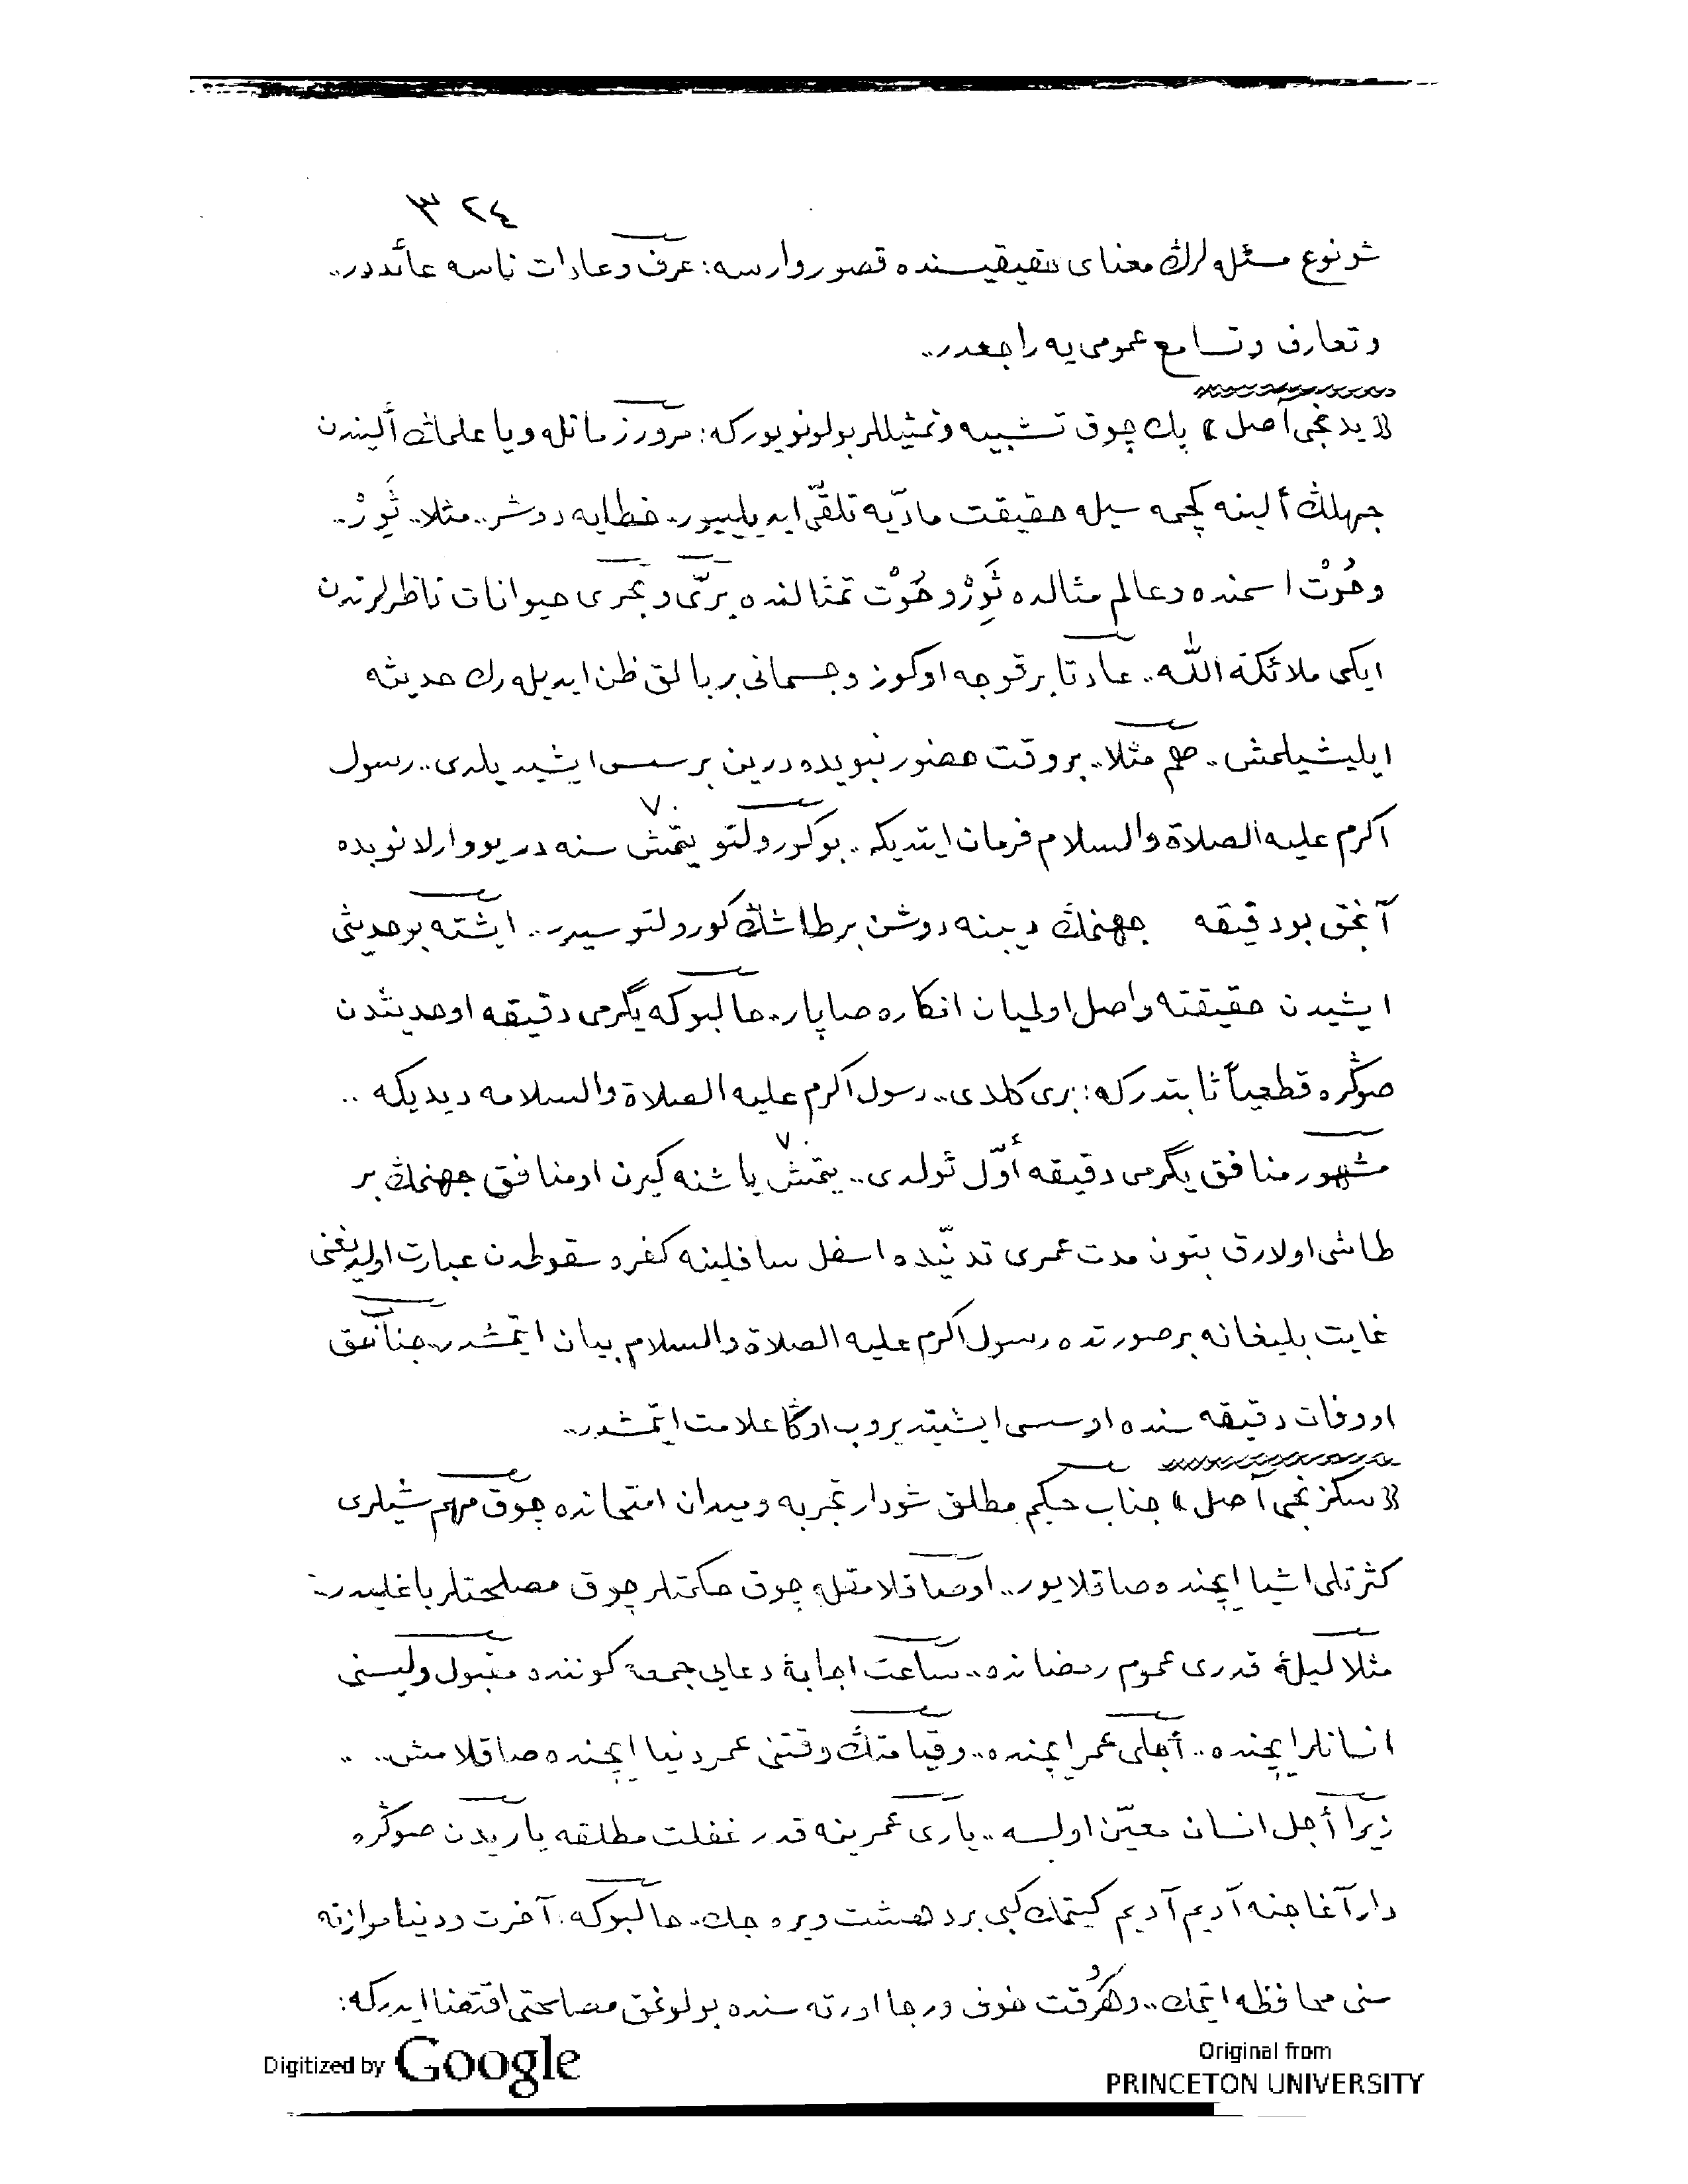 ٣٢٤
شو نوع مسئله‌لرڭ معنای حقیقیسنده قصور وارسه: عرف و عادات ناسه عائددر..
و تعارف و تسامع عمومی‌یه راجعدر..
﴿یدنجی آصل﴾ پك چوق تشبیه و تمثیللر بولونویورکه: مرور زمانله ویا علمڭ ألیندن
جهلڭ ألینه کچمه‌سیله حقیقت مادّیه تلقّی ایدیلییور.. خطایه دوشر.. مثلا.. ثَورْ..
و حُوتْ اسمنده و عالم مثالده ثَورْ و حُوتْ تمثالنده برّی و بحری حیوانات ناظرلرندن
ایکی ملائكة الله.. عادتا بر قوجه اوکوز و جسمانی بر بالق ظن ایدیله‌رك حدیثه
ایلیشیلمش.. هم مثلا.. بر وقت حضور نبویده درین بر سس ایشیدیلدی.. رسول
اکرم علیه الصلاة والسلام فرمان ایتدیکه.. بو کورولتو یتمش ٧٠ سنه‌در یووارلانوبده
آنجق بو دقیقه جهنمڭ دیبنه دوشن بر طاشڭ کورولتوسیدر.. ایشته بو حدیثی
ایشیدن حقیقته واصل اولمیان انکاره صاپار.. حالبوکه یگرمی دقیقه او حدیثدن
صوڭره قطعیاً ثابتدرکه: بری کلدی.. رسول اکرم علیه الصلاة والسلامه دیدیکه ..
مشهور منافق یگرمی دقیقه أوّل ئولدی.. یتمش ٧٠ یاشنه کیرن او منافق جهنمڭ بر
طاشی اولارق بتون مدت عمری تدنّیده اسفل سافلینه کفره سقوطدن عبارت اولدیغنی
غایت بلیغانه بر صورتده رسول اکرم علیه الصلاة والسلام بیان ایتمشدر.. جناب حق
او وفات دقیقه‌سنده او سسی ایشیتدیروب اوڭا علامت ایتمشدر..
﴿سکزنجی آصل﴾ جناب حکیم مطلق شو دار تجربه و میدان امتحانده چوق مهم شیلری
کثرتلی اشیا ایچنده صاقلایور.. او صاقلامقله چوق حکمتلر چوق مصلحتلر باغلیدر..
مثلا لیلهٔ قدری عموم رمضانده.. ساعت اجابهٔ دعایی جمعه کوننده مقبول ولیسنی
انسانلر ایچنده.. أجلی عمر ایچنده.. و قیامتڭ وقتنی عمر دنیا ایچنده صاقلامش.. ..
زیرا أجل انسان معیّن اولسه.. یاری عمرینه قدر غفلت مطلقه یاریدن صوڭره
دار آغاجنه آدیم آدیم کیتمك کبی بر دهشت ویره‌جك.. حالبوکه: آخرت و دنیا موازنه
سنی محافظه ایتمك.. و هر وقت خوف و رجا اورته‌سنده بولونمق مصلحتی اقتضا ایدرکه:
Digitized by Google
Original from
PRINCETON UNIVERSITY